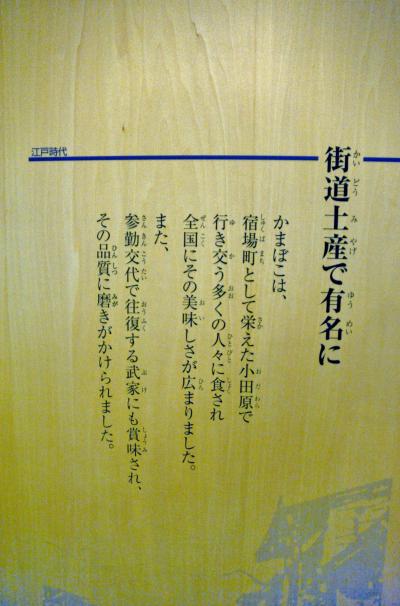 江戸時代
街道土産で有名に
かまぼこは、
宿場町として栄えた小田原で
行き交う多くの人々に食され
全国にその美味しさが広まりました。
また、
参勤交代で往復する武家にも賞味され、
その品質に磨きがかけられました。